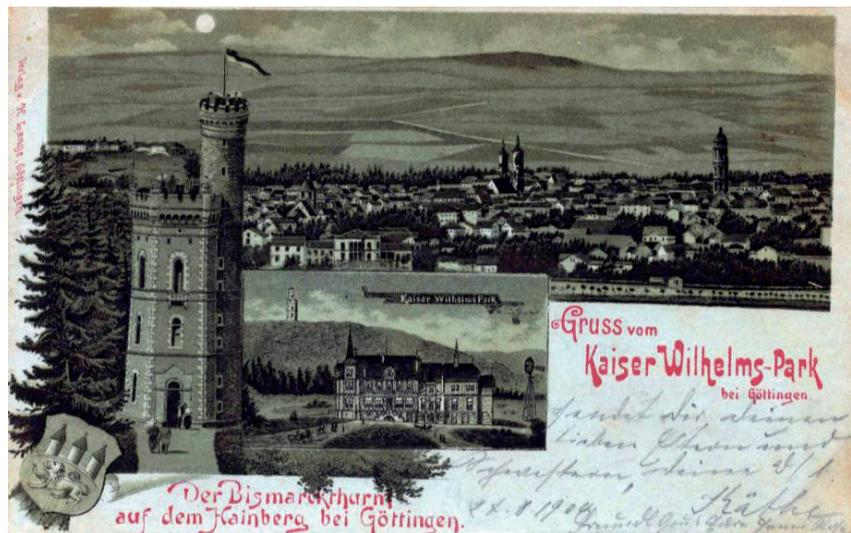 Verlag v. H. Lange, Göttingen.
Kaiser Wilhelms Park
Gruss vom
Kaiser Wilhelms-Park
bei Göttingen.
sendet dir, deinen
lieben Eltern und
Schwestern, deine
Käthe
Der Bismarckthurm
auf dem Hainberg bei Göttingen.